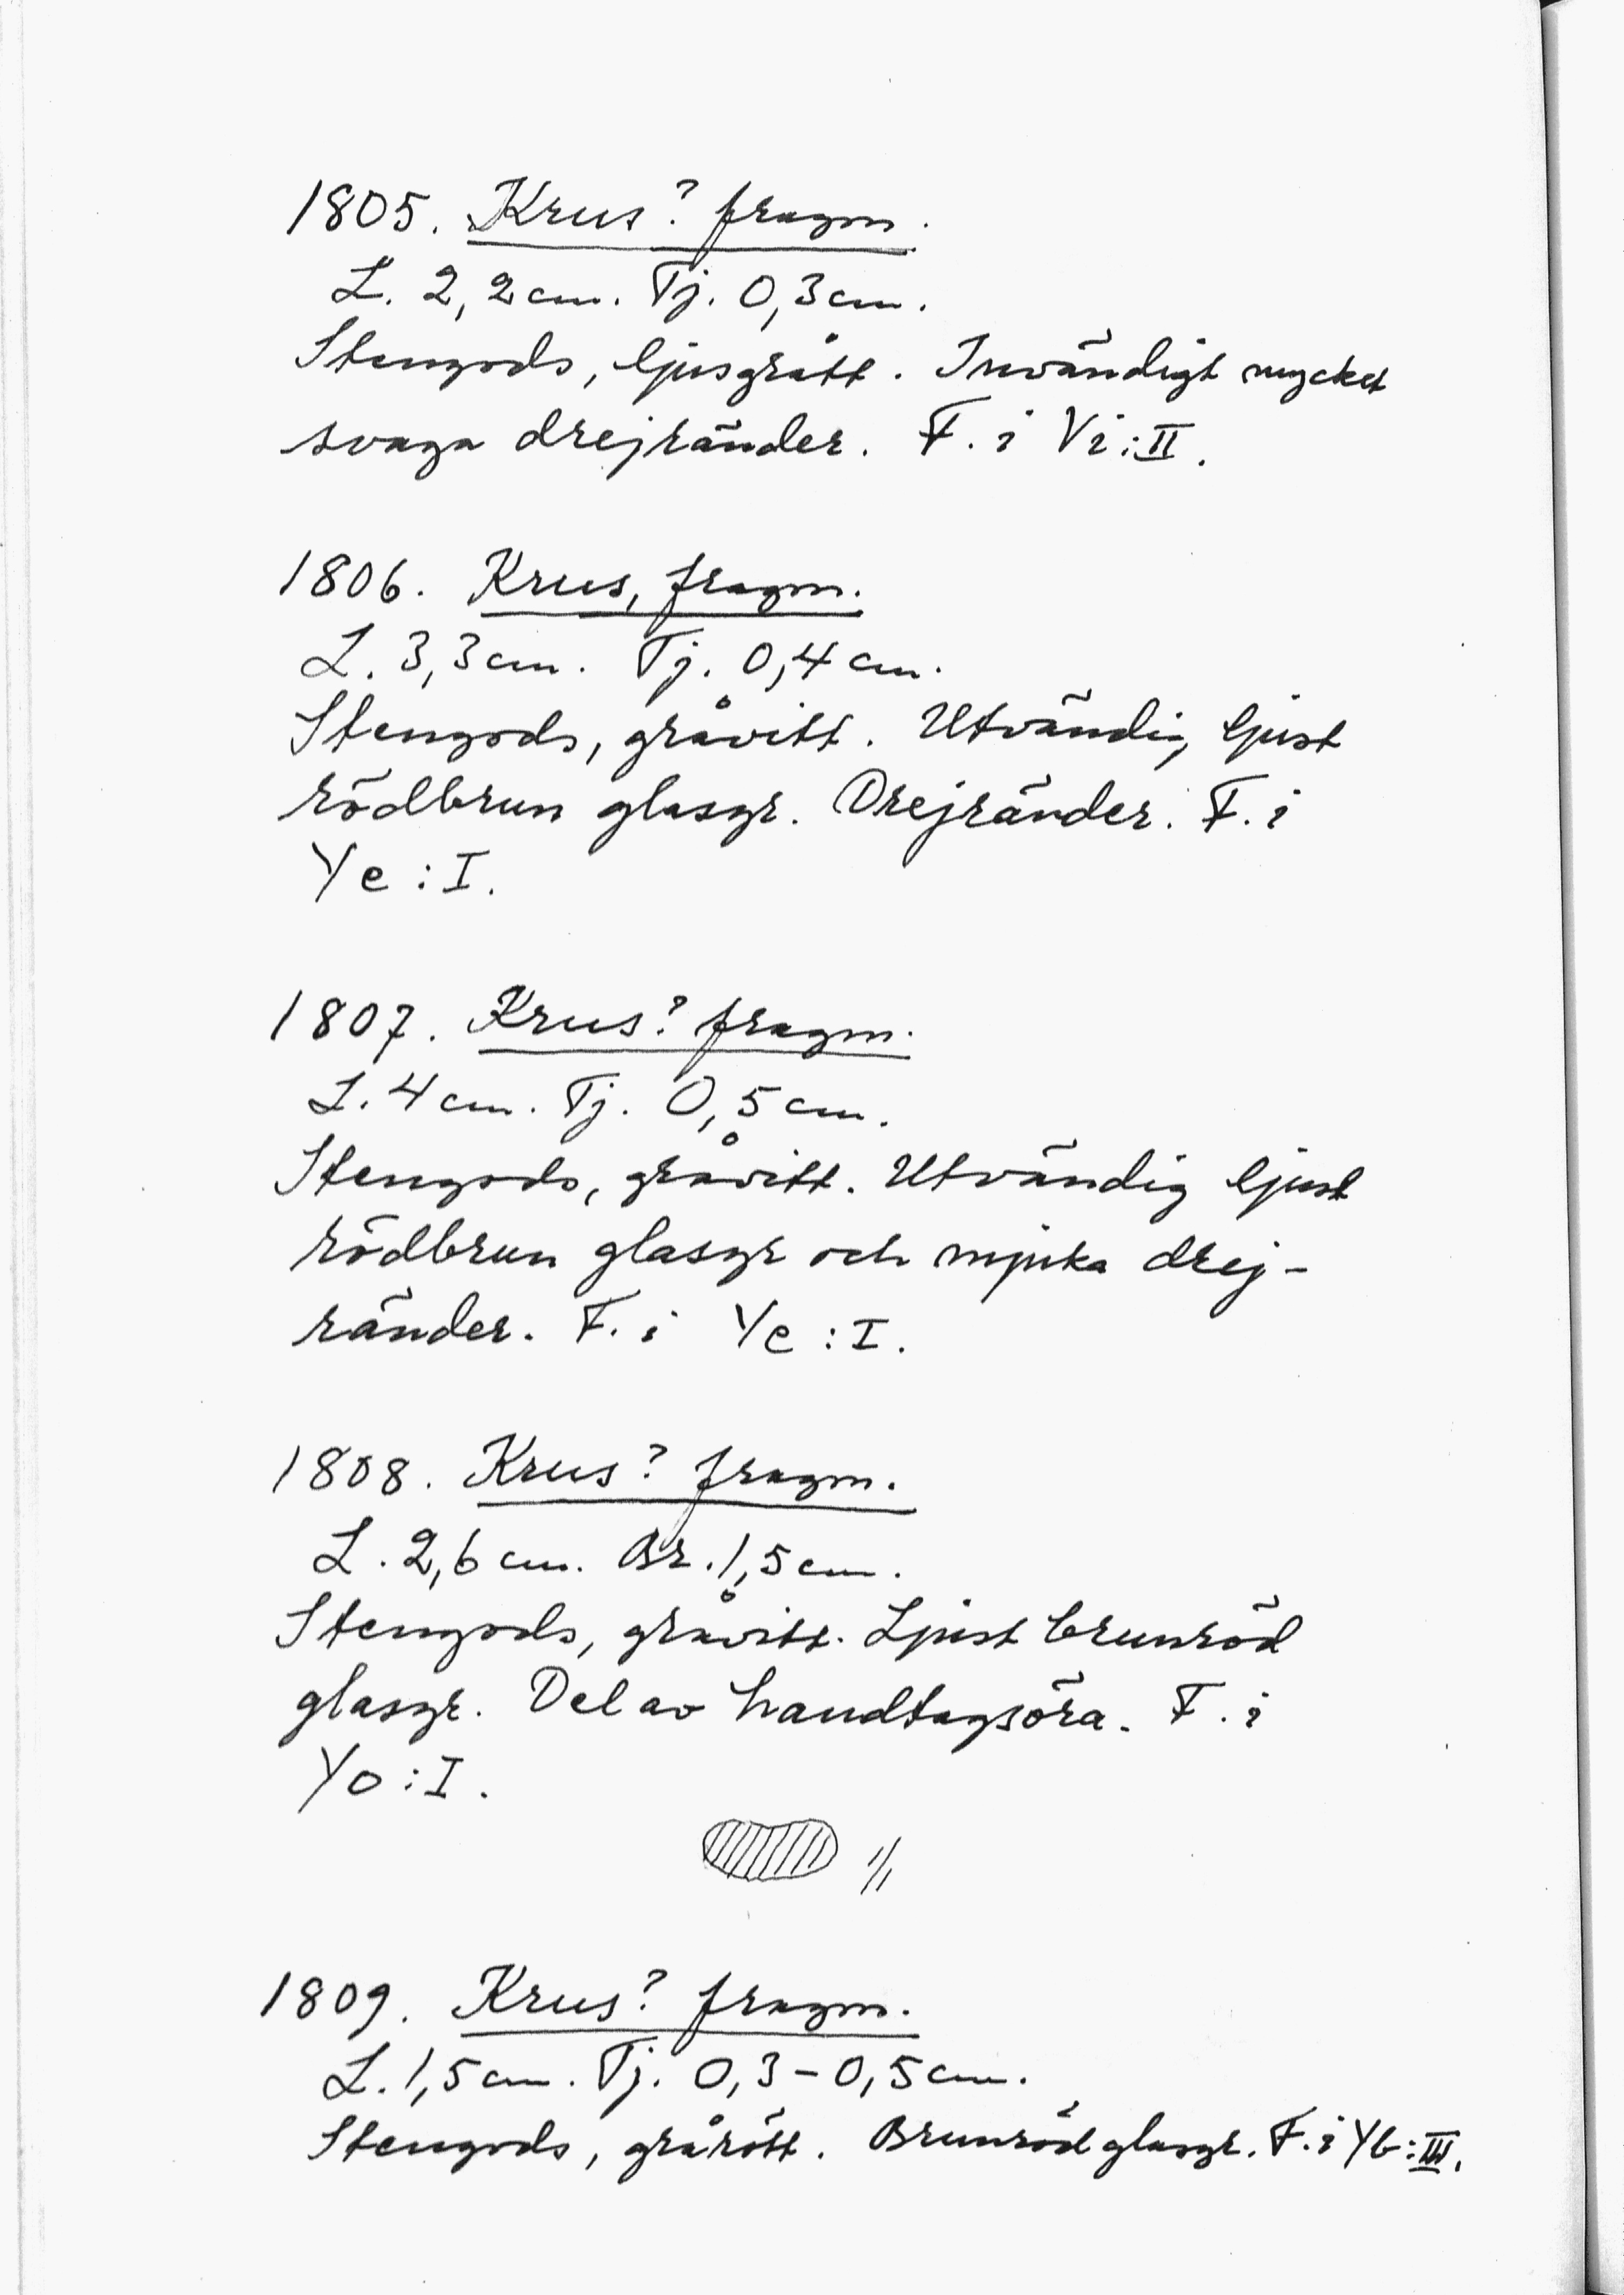 1805. Krus? fragm.
L. 2,2 cm. Tj. 0,3 cm.
Stengods, ljusgrått. Invändigt mycket
svaga drejränder. F. i Vi:II.
1806. Krus, fragm.
L. 3,3 cm. Tj. 0,4 cm.
Stengods, gråvitt. Utvändig, ljust
rödbrun glasyr. Drejränder. F. i
Ye:I.
1807. Krus? fragm.
L. 4 cm. Tj. 0,5 cm.
Stengods, gråvitt. Utvändig ljust
rödbrun glasyr och mjuka drej-
ränder. F. i Ye:I.
1808. Krus? fragm.
L. 2,6 cm. Br. 1,5 cm.
Stengods, gråvitt. Ljust brunröd
glasyr. Del av handtagsöra. F. i
Yo:I.
1/1
1809. Krus? fragm.
L. 1,5 cm. Tj. 0,3-0,5 cm.
Stengods, grårött. Brunröd glasyr. F. i Yb:III.